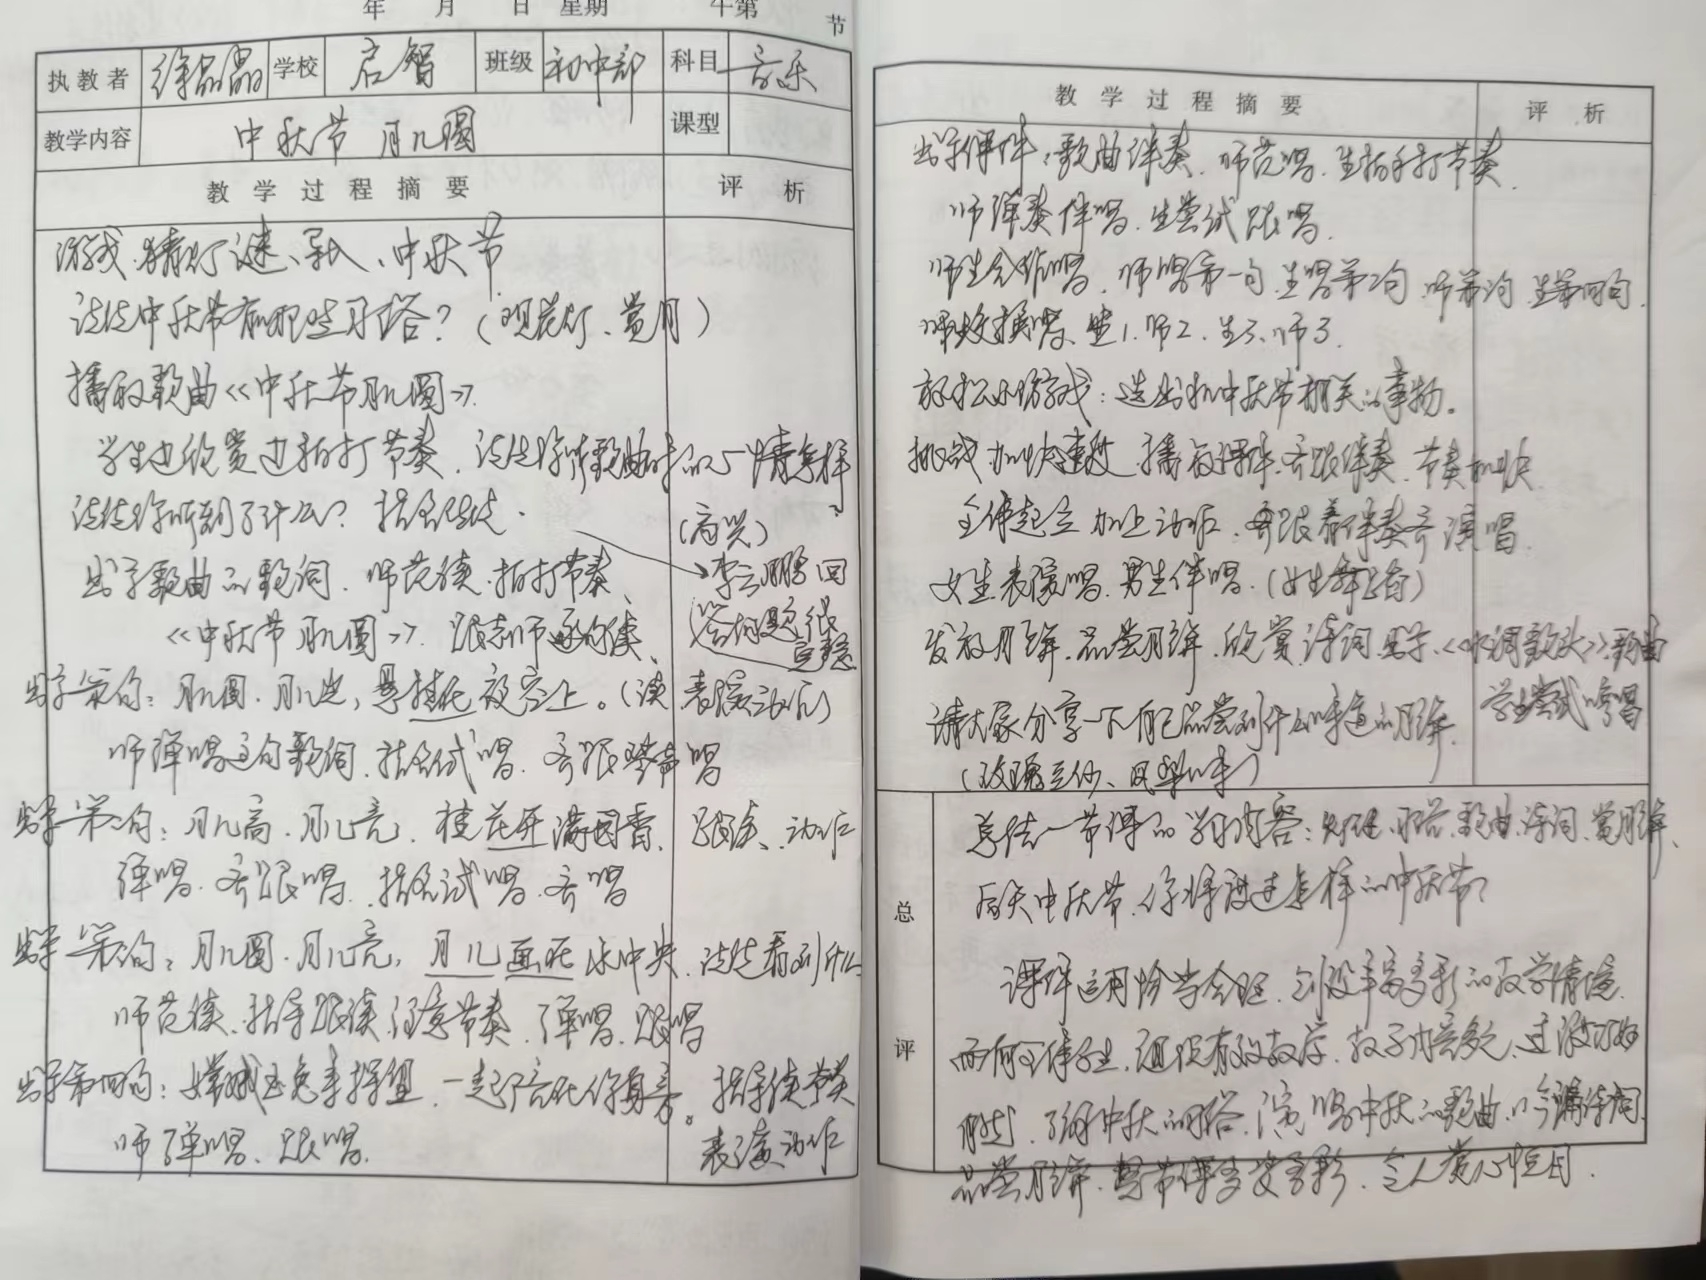 年 月 日 星期 午第 节
执教者 徐晶晶 学校 启智 班级 初中部 科目 音乐
教学内容 中秋节 月儿圆 课型
教学过程摘要 评析
游戏、猜灯谜、导入、中秋节
说说中秋节有哪些习俗？（观花灯、赏月）
播放歌曲《中秋节月儿圆》。
学生边欣赏边拍打节奏，说说你听歌曲时的心情怎样
说说你听到了什么？指名说说． （高兴）
出示歌曲的歌词．师范读．拍打节奏、 李云鹏回
答问题很
《中秋节月儿圆》．跟老师逐句读、
出示第一句：月儿圆．月儿光，悬挂在夜空上。（读 表演动作）
师弹唱这句歌词．指名试唱．齐跟琴声唱
出示第二句：月儿高．月儿亮．桂花开满园香． 跟读、动作
弹唱．齐跟唱．指名试唱．齐唱
出示第三句：月儿圆．月儿亮，月儿画在水中央．说说看到什么
师范读．指导跟读．注意节奏．弹唱．跟唱
出示第四句：嫦娥玉兔来探望．一起陪在你身旁。指导读节奏
师弹唱、跟唱． 表演动作
教学过程摘要 评析
出示课件：歌曲伴奏．师范唱．生拍手打节奏．
师弹奏伴唱．生尝试跟唱．
师生合作唱．师唱第一句．生唱第二句．师第三句．生第四句．
师生交换唱、生1．师2．生3、师
放松小游戏：选出和中秋节相关的事物。
挑战 加快速度 播放课件．齐跟伴奏．节奏加快．
全体起立 加上动作．齐跟着伴奏齐演唱．
女生表演唱．男生伴唱．（女生舞蹈）
发放月饼．品尝月饼．欣赏诗词．出示《水调歌头》歌曲
学生尝试哼唱
请大家分享一下自己品尝到什么味道的月饼．
（玫瑰豆沙、凤梨味）
总结一节课的学习内容：灯谜．习俗．歌曲．诗词．赏月饼、
后天中秋节．你将度过怎样的中秋节？
总评
课件运用恰当合理．创设丰富多彩的教学情境．
面向全体学生．组织有效教学．教学内容多元．过渡巧妙
自然．了解中秋的习俗．演唱中秋的歌曲．吟诵诗词．
品尝月饼．整节课多姿多彩．令人赏心悦目．